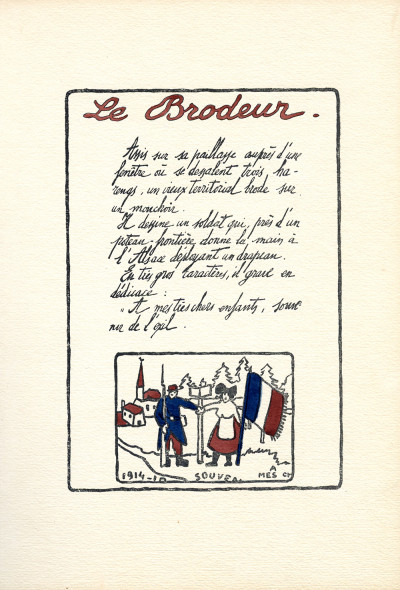 Le Brodeur.
Assis sur sa paillasse auprès d'une
fenêtre où se dessalent trois, ha-
rengs, un vieux territorial brode sur
un mouchoir.
Il dessine un soldat qui, près d'un
poteau-frontière, donne la main à
l'Alsace déployant un drapeau.
En très gros caractères, il grave en
dédicace :
"A mes très chers enfants, souve-
nir de l'exil.
1914-1
SOUVE
A
MES CH